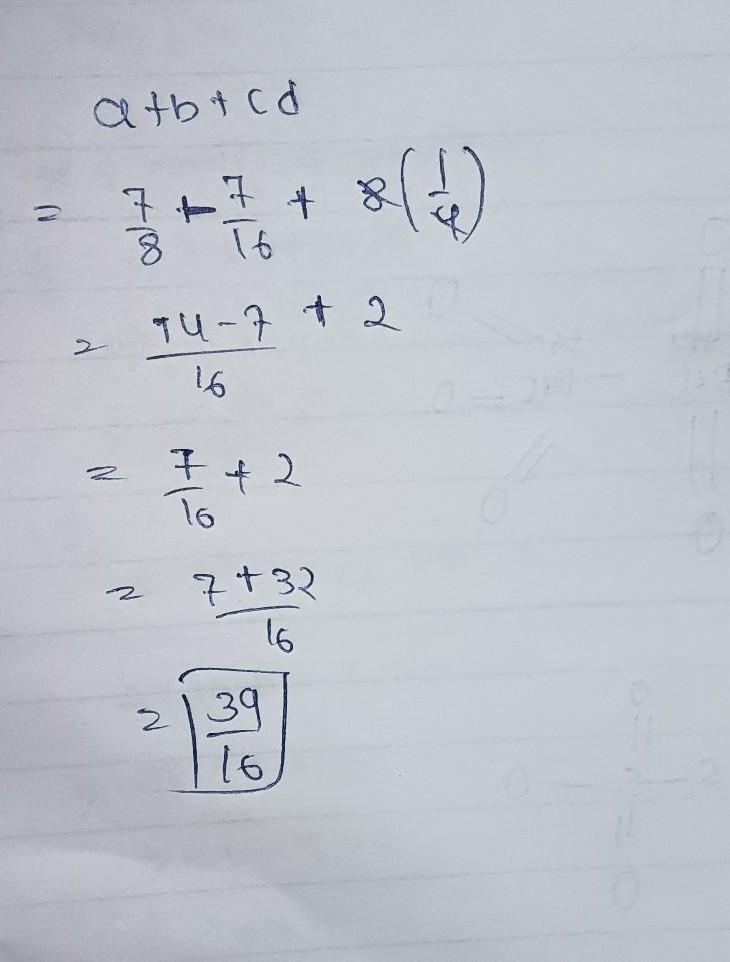 a+b+cd
= 7/8 + -7/16 + 8(1/4)
= 14-7/16 + 2
= 7/16 + 2
= 7+32/16
= 39/16